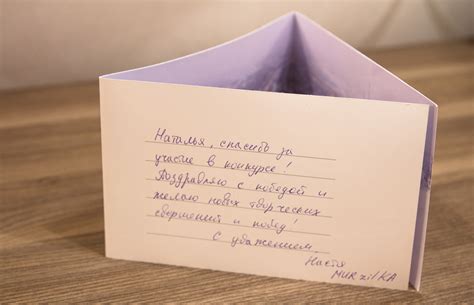 Наталья, спасибо за
участие в конкурсе!
Поздравляю с победой и
желаю новых творческих
свершений и побед!
С уважением,
Настя
MURzilKA